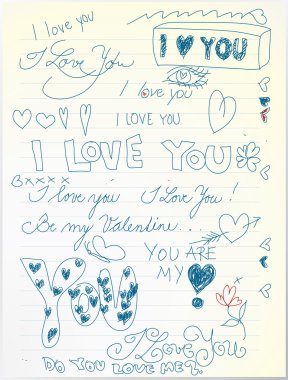 I love you
I ♥ YOU
I Love You
I love you
I LOVE YOU
I LOVE YOU
xxxxx
I love you I Love You !
Be my Valentine...
YOU ARE
MY ♥
YOU
I Love You
DO YOU LOVE ME?